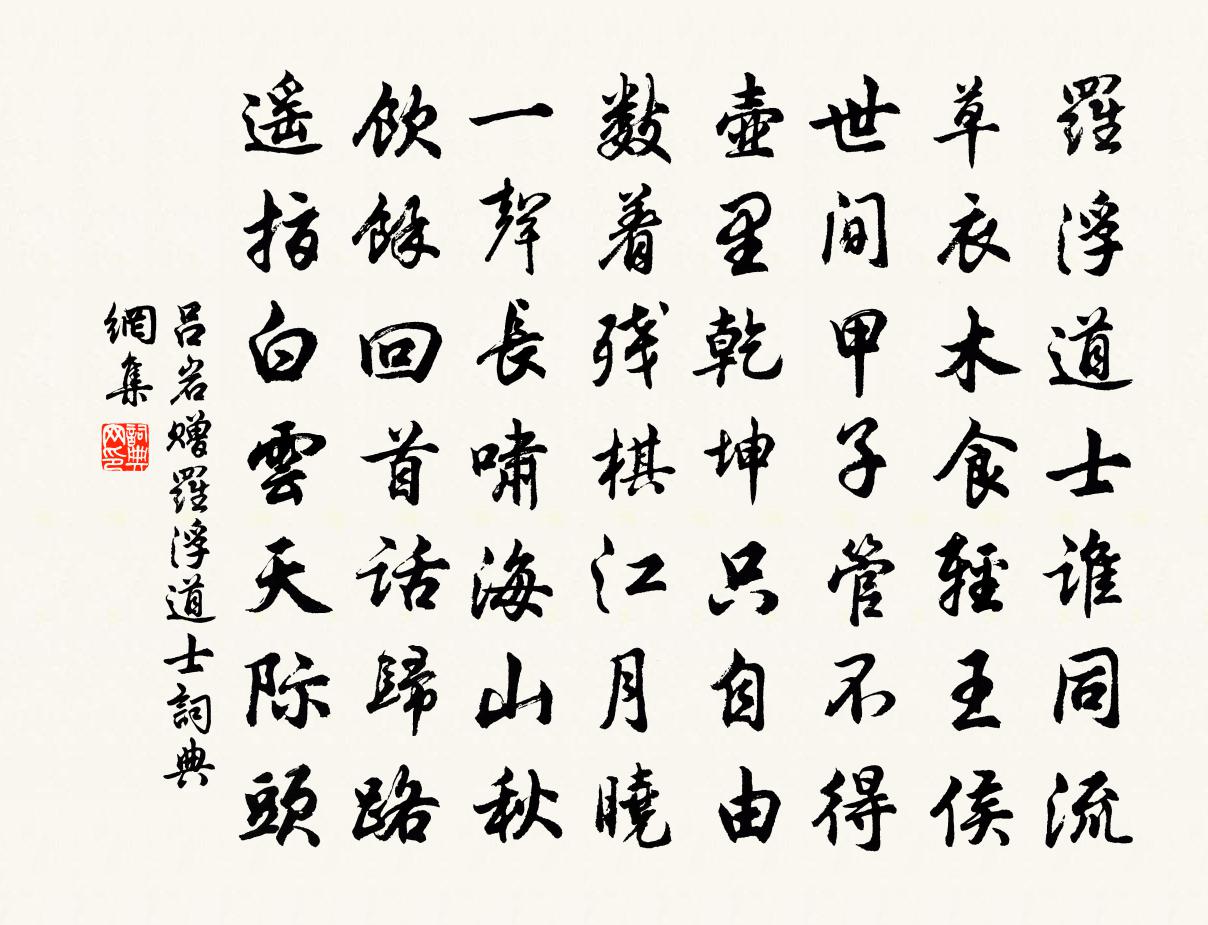 羅浮道士誰同流
草衣木食輕王侯
世間甲子管不得
壺里乾坤只自由
數着殘棋江月曉
一聲長嘯海山秋
飲餘回首話歸路
遥指白雲天际頭
呂岩赠羅浮道士詞典
網集
詞典
网印